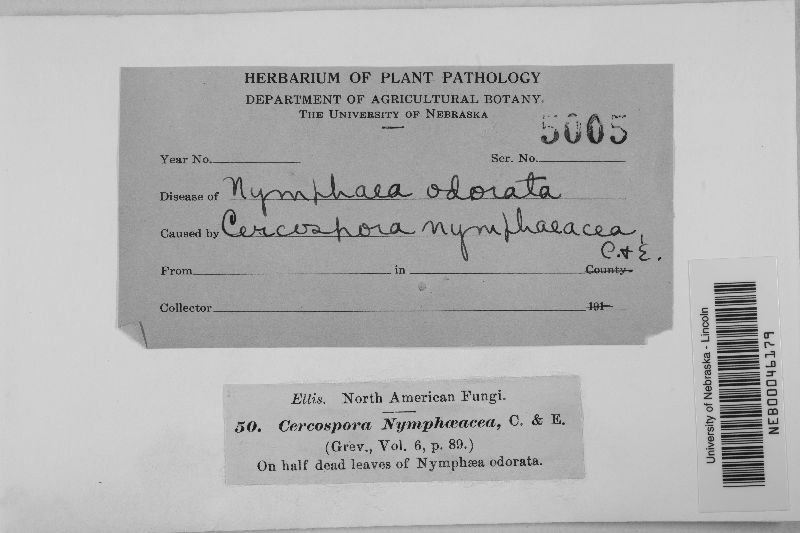 HERBARIUM OF PLANT PATHOLOGY
DEPARTMENT OF AGRICULTURAL BOTANY.
THE UNIVERSITY OF NEBRASKA
5005
Year No. Ser. No.
Disease of Nymphaea odorata
Caused by Cercospora nymphaeacea,
C. & E.
From in County
Collector 191
Ellis. North American Fungi.
50. Cercospora Nymphæacea, C. & E.
(Grev., Vol. 6, p. 89.)
On half dead leaves of Nymphæa odorata.
University of Nebraska - Lincoln
NEB00046179